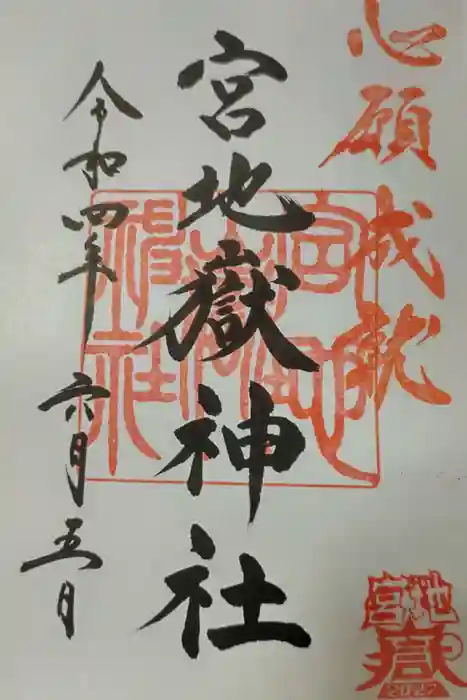 心願成就
宮地嶽神社
宮地嶽神社
令和四年 六月五日
宮地嶽